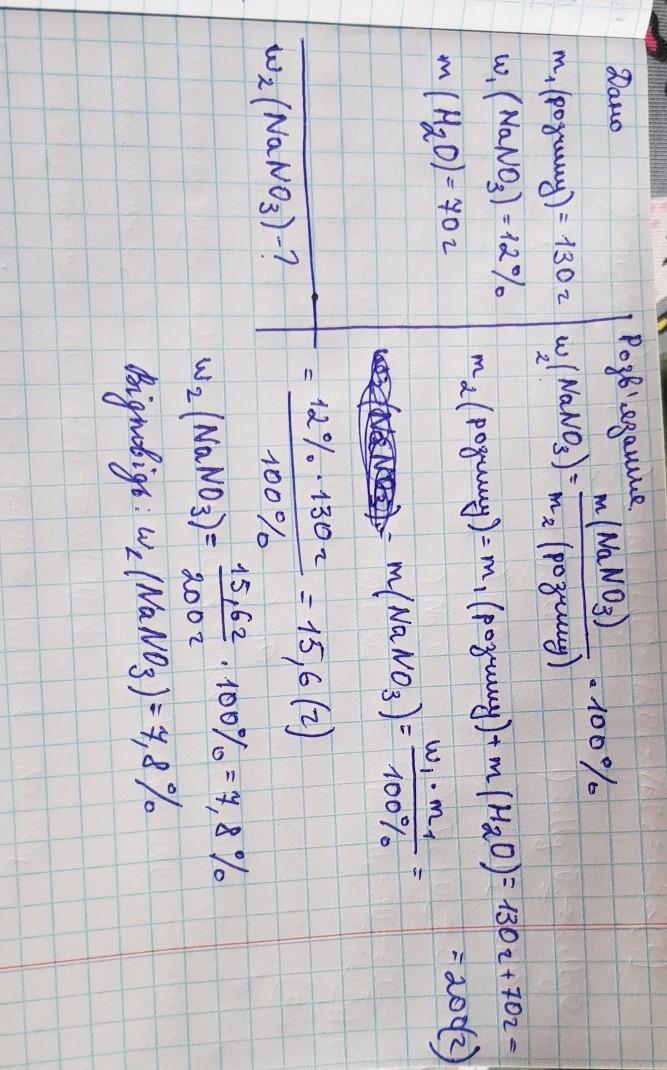 Дано
m₁(розчину) = 130г
w₁(NaNO₃) = 12%
m(H₂O) = 70г
w₂(NaNO₃) - ?
Розв'язання
w₂(NaNO₃) = m(NaNO₃) / m₂(розчину) · 100%
m₂(розчину) = m₁(розчину) + m(H₂O) = 130г + 70г =
= 200(г)
m(NaNO₃) = w₁ · m₁ / 100% =
= 12% · 130г / 100% = 15,6(г)
w₂(NaNO₃) = 15,6г / 200г · 100% = 7,8%
Відповідь: w₂(NaNO₃) = 7,8%